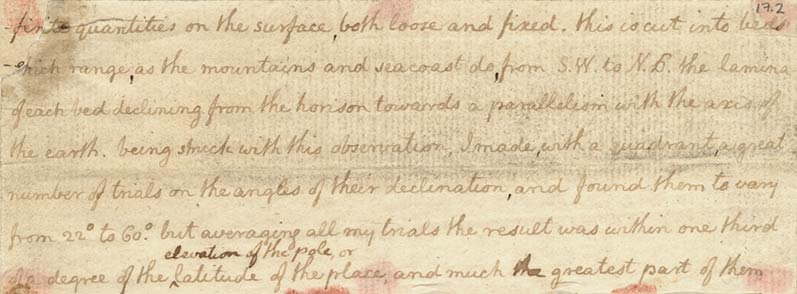 17.2
-finite quantities on the surface, both loose and fixed. this is cut into beds
-hich range, as the mountains and seacoast do, from S.W. to N.E. the lamina
of each bed declining from the horison towards a parallelism with the axis of
the earth. being struck with this observation, I made, with a quadrant, a great
number of trials on the angles of their declination, and found them to vary
from 22° to 60.° but averaging all my trials the result was within one third
elevation of the pole, or
of a degree of the ‸ latitude of the place, and much the greatest part of them